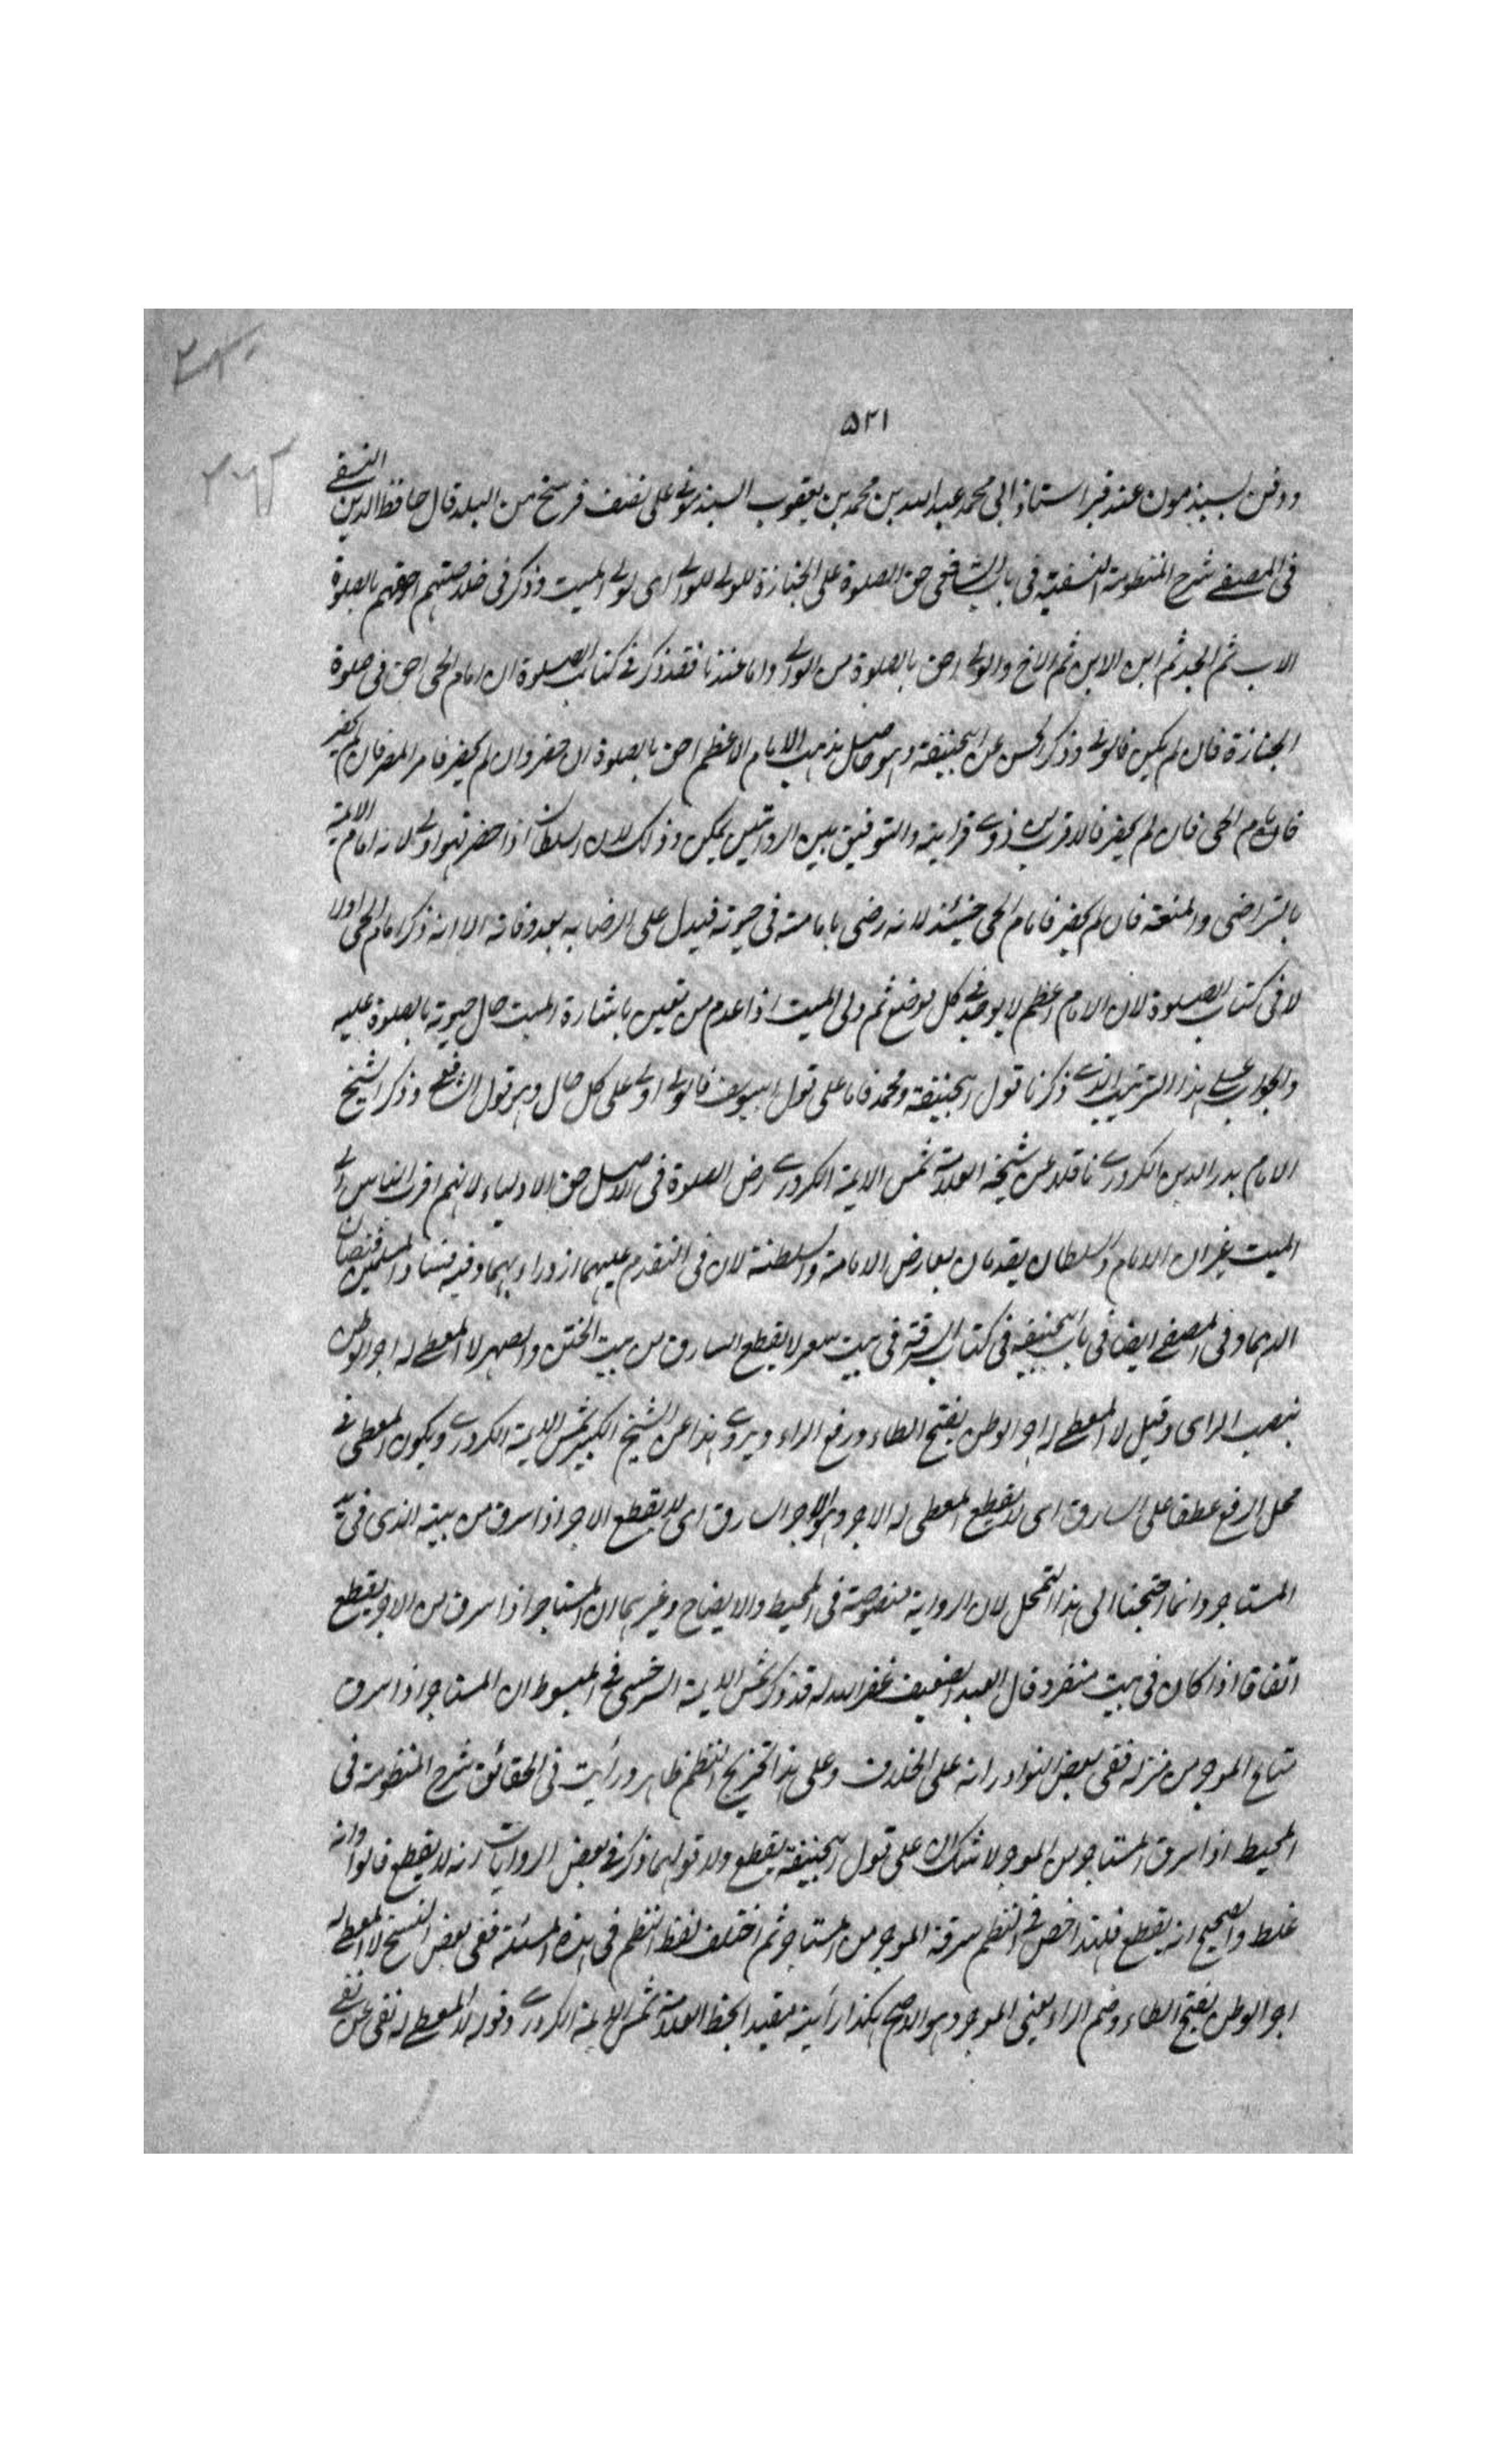 ۵۲۱
ودفن بسبذمون عند قبر استاذ ابی محمد عبد الله بن محمد بن یعقوب السبذمونی علی نصف فرسخ من البلد قال حافظ الدین النسفی
فی المصفی شرح المنظومة النسفیة فی باب الشافعی حق الصلوة علی الجنازة للولی للوالی ای لولی المیت وذکر فی خلاصتهم احقهم بالصلوة
الاب ثم الجد ثم ابن الابن ثم الاخ والولی احق بالصلوة من الوالی واما عندنا فقد ذکر فی کتاب الصلوة ان امام الحی احق فی صلوة
الجنازة فان لم یکن فالولی وذکر الحسن عن ابیحنیفة وهو حاصل مذهب الامام الاعظم احق بالصلوة ان حضر وان لم یحضر فامیر المصر فان لم یحضر
فامام الحی فان لم یحضر فالاقرب من ذوی قرابته والتوفیق بین الروایتین یمکن وذلک لان السلطان اذا حضر فهو اولی لانه امام الائمة
بالتراضی والمنعة فان لم یحضر فامام الحی حینئذ لانه رضی بامامته فی حیوته فیدل علی الرضا به بعد وفاته الا انه ذکر امام الحی اولا
لا فی کتاب الصلوة لان الامام الاعظم لا یوجد فی کل موضع ثم ولی المیت اذا عدم من تعین باشارة المیت حال حیوته بالصلوة علیه
والجواب علی هذا الترتیب الذی ذکرنا قول ابیحنیفة ومحمد فاما علی قول ابییوسف فالولی اولی علی کل حال وهو قول الشافعی وذکر الشیخ
الامام بدر الدین الکردری ناقلا عن شیخه العلامة شمس الایمة الکردری رض الصلوة فی الاصل حق الاولیاء لانهم اقرب الناس الی
المیت غیر ان الامام والسلطان یقدمان بعارض الامامة والسلطنة لان فی التقدم علیهما ازدراء بهما وفیه فساد المسلمین فیتصان
الدیما وفی المصفی ایضا فی باب ابیحنیفة فی کتاب السرقة فی بیت سعر لا یقطع السارق من بیت الختن والصهر لا المعطی له اجر الوطن
بنصب الرای وقیل لا المعطی له اجر الوطن بفتح الطاء ورفع الراء ویروی هذا عن الشیخ الکبیر شمس الایمة الکردری ویکون المعطی فی
محل الرفع عطفا علی السارق ای لا یقطع المعطی له الاجر وهو الاجر السارق ای لا یقطع الاجر اذا سرق من بیته الذی فی ید
المستاجر وانما احتجنا الی هذا التمحل لان الروایة منصوصة فی المحیط والایضاح وغیرهما ان المستاجر اذا سرق من الاجر یقطع
اتفاقا اذا کان فی بیت منفرد قال العبد الضعیف غفر الله له قد ذکر شمس الایمة السرخسی فی المبسوط ان المستاجر اذا سرق
متاع الموجر من منزله ففی بعض النوادر انه علی الخلاف وعلی هذا تخریج النظم ظاهر ورأیت فی الحقائق شرح المنظومة فی
المحیط اذا سرق المستاجر من الموجر لا شک ان علی قول ابیحنیفة یقطع ولا قولهما وذکر فی بعض الروایات انه لا یقطع قالوا وانه
غلط والصحیح انه یقطع فلهذا خص فی النظم سرقة الموجر من المستاجر ثم اختلف لفظ النظم فی هذه المسئلة ففی بعض النسخ لا المعطی له
اجر الوطن بفتح الطاء وضم الراء یعنی الموجر وهو الاصح هکذا رأیته مقیدا بخط العلامة شمس الایمة الکردری وقوله لا المعطی له نفی عن نفی